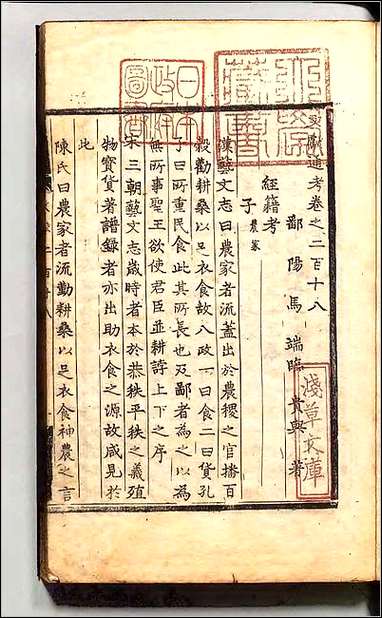 文獻通考卷之二百十八
鄱陽馬端臨貴與著
經籍考
子農家
漢藝文志曰農家者流蓋出於農稷之官播百
穀勸耕桑以足衣食故八政一曰食二曰貨孔
子曰所重民食此其所長也及鄙者為之以為
無所事聖王欲使君臣並耕誖上下之序
宋三朝藝文志歲時者本於恭秩平秩之義殖
物寶貨著譜錄者亦出助衣食之源故咸見於
此
陳氏曰農家者流勤耕桑以足衣食神農之言
淺草文庫
日本政府圖書